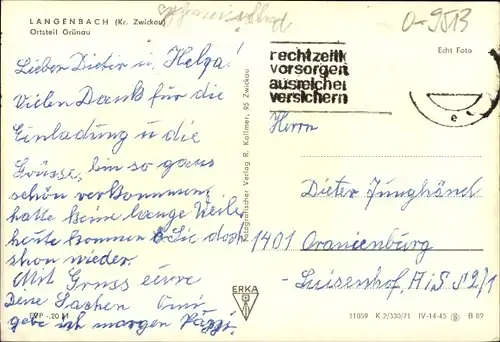 LANGENBACH (Kr. Zwickau)
Ortsteil Grünau
0-9513
Echt Foto
rechtzeitig
vorsorgen
ausreichen
versichern
e
Lieber Dieter u. Helga!
Vielen Dank für die
Einladung u die
Grüsse, bin so ganz
schön verkommen,
hatte keine lange Weile,
heute kommen Sie doch
schon wieder.
Mit Gruss eure
Deine Sachen
gebe ich morgen
Fotografischer Verlag R. Kallmer, 95 Zwickau
Herrn
Dieter Junghänel
1401 Oranienburg
Luisenhof, A.S. 2/1
ERKA
EVP -.20 M
11059 K 2/330/71 IV-14-45 B 09